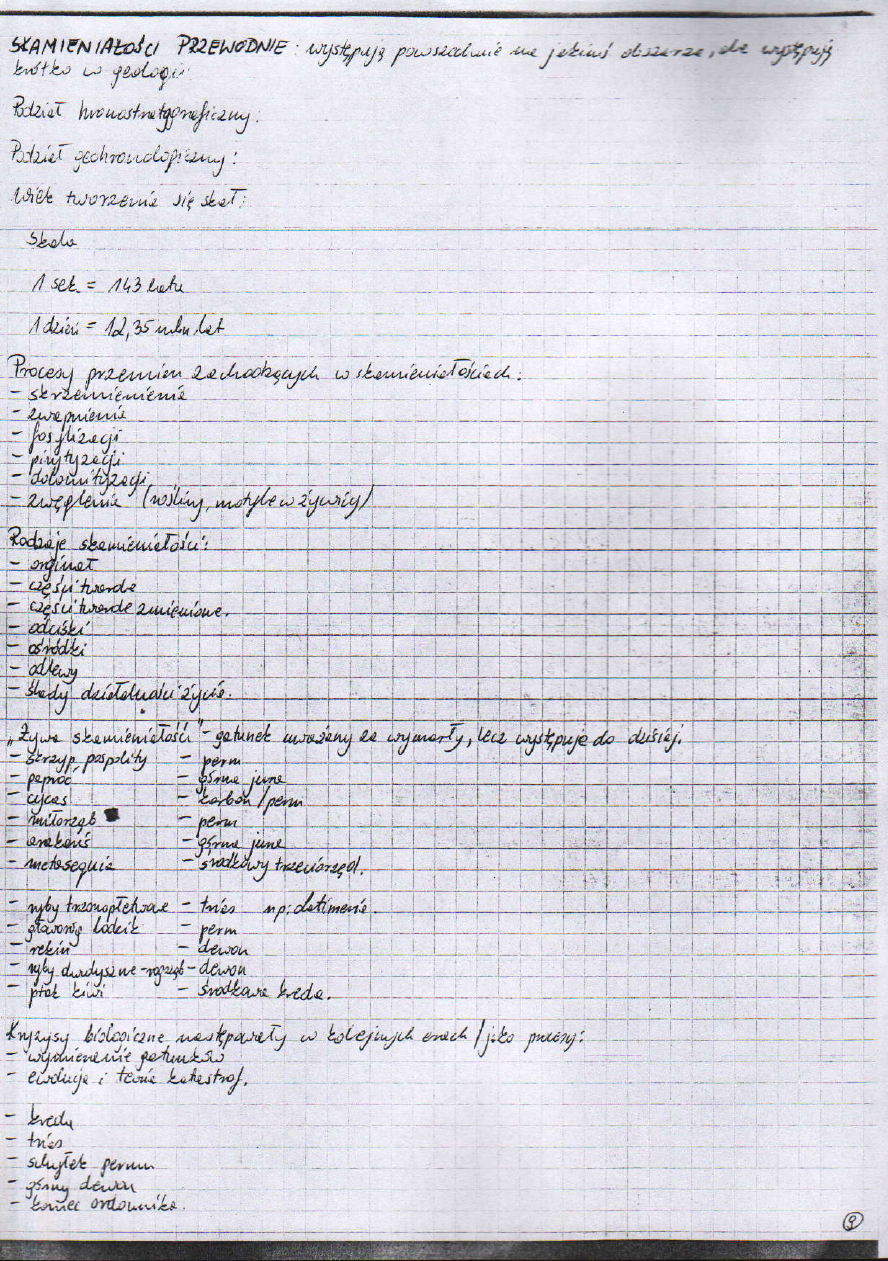 SKAMIENIAŁOŚCI PRZEWODNIE: występują powszechnie na jakimś obszarze, ale występują
krótko w geologii
Podział hronostratygraficzny:
Podział geohronologiczny:
Wiek tworzenia się skał:
Skala
1 sek. = 143 lata
1 dzień = 12,35 mln lat
Procesy przemian zachodzących w skamieniałościach:
- skrzemienienia
- zwapnienia
- fosylizacji
- pirytyzacji
- dolomityzacji
- zwęglenia (rośliny, motyle w żywicy)
Rodzaje skamieniałości:
- orginał
- części twarde
- części twarde zmienione.
- odciski
- ośrodki
- odlewy
- ślady działalności życia.
„Żywa skamieniałość" - gatunek uważany za wymarły, lecz występuje do dzisiaj.
- skrzyp pospolity - perm
- paproć - górna jura
- cycas - karbon / perm
- miłorząb - perm
- - górna jura
- metasequia - środkowy trzeciorzęd.
- ryby trzonopłetwe - trias np:
- łodzik - perm
- rekin - dewon
- ryby dwudyszne - rogoząb - dewon
- ptak kiwi - środkowa kreda.
Kryzysy biologiczne następowały w kolejnych erach / jako procesy:
- wymieranie gatunków
- ewolucja i teoria katastrof.
- kreda
- trias
- schyłek permu
- górny dewon
- koniec ordowika.
3